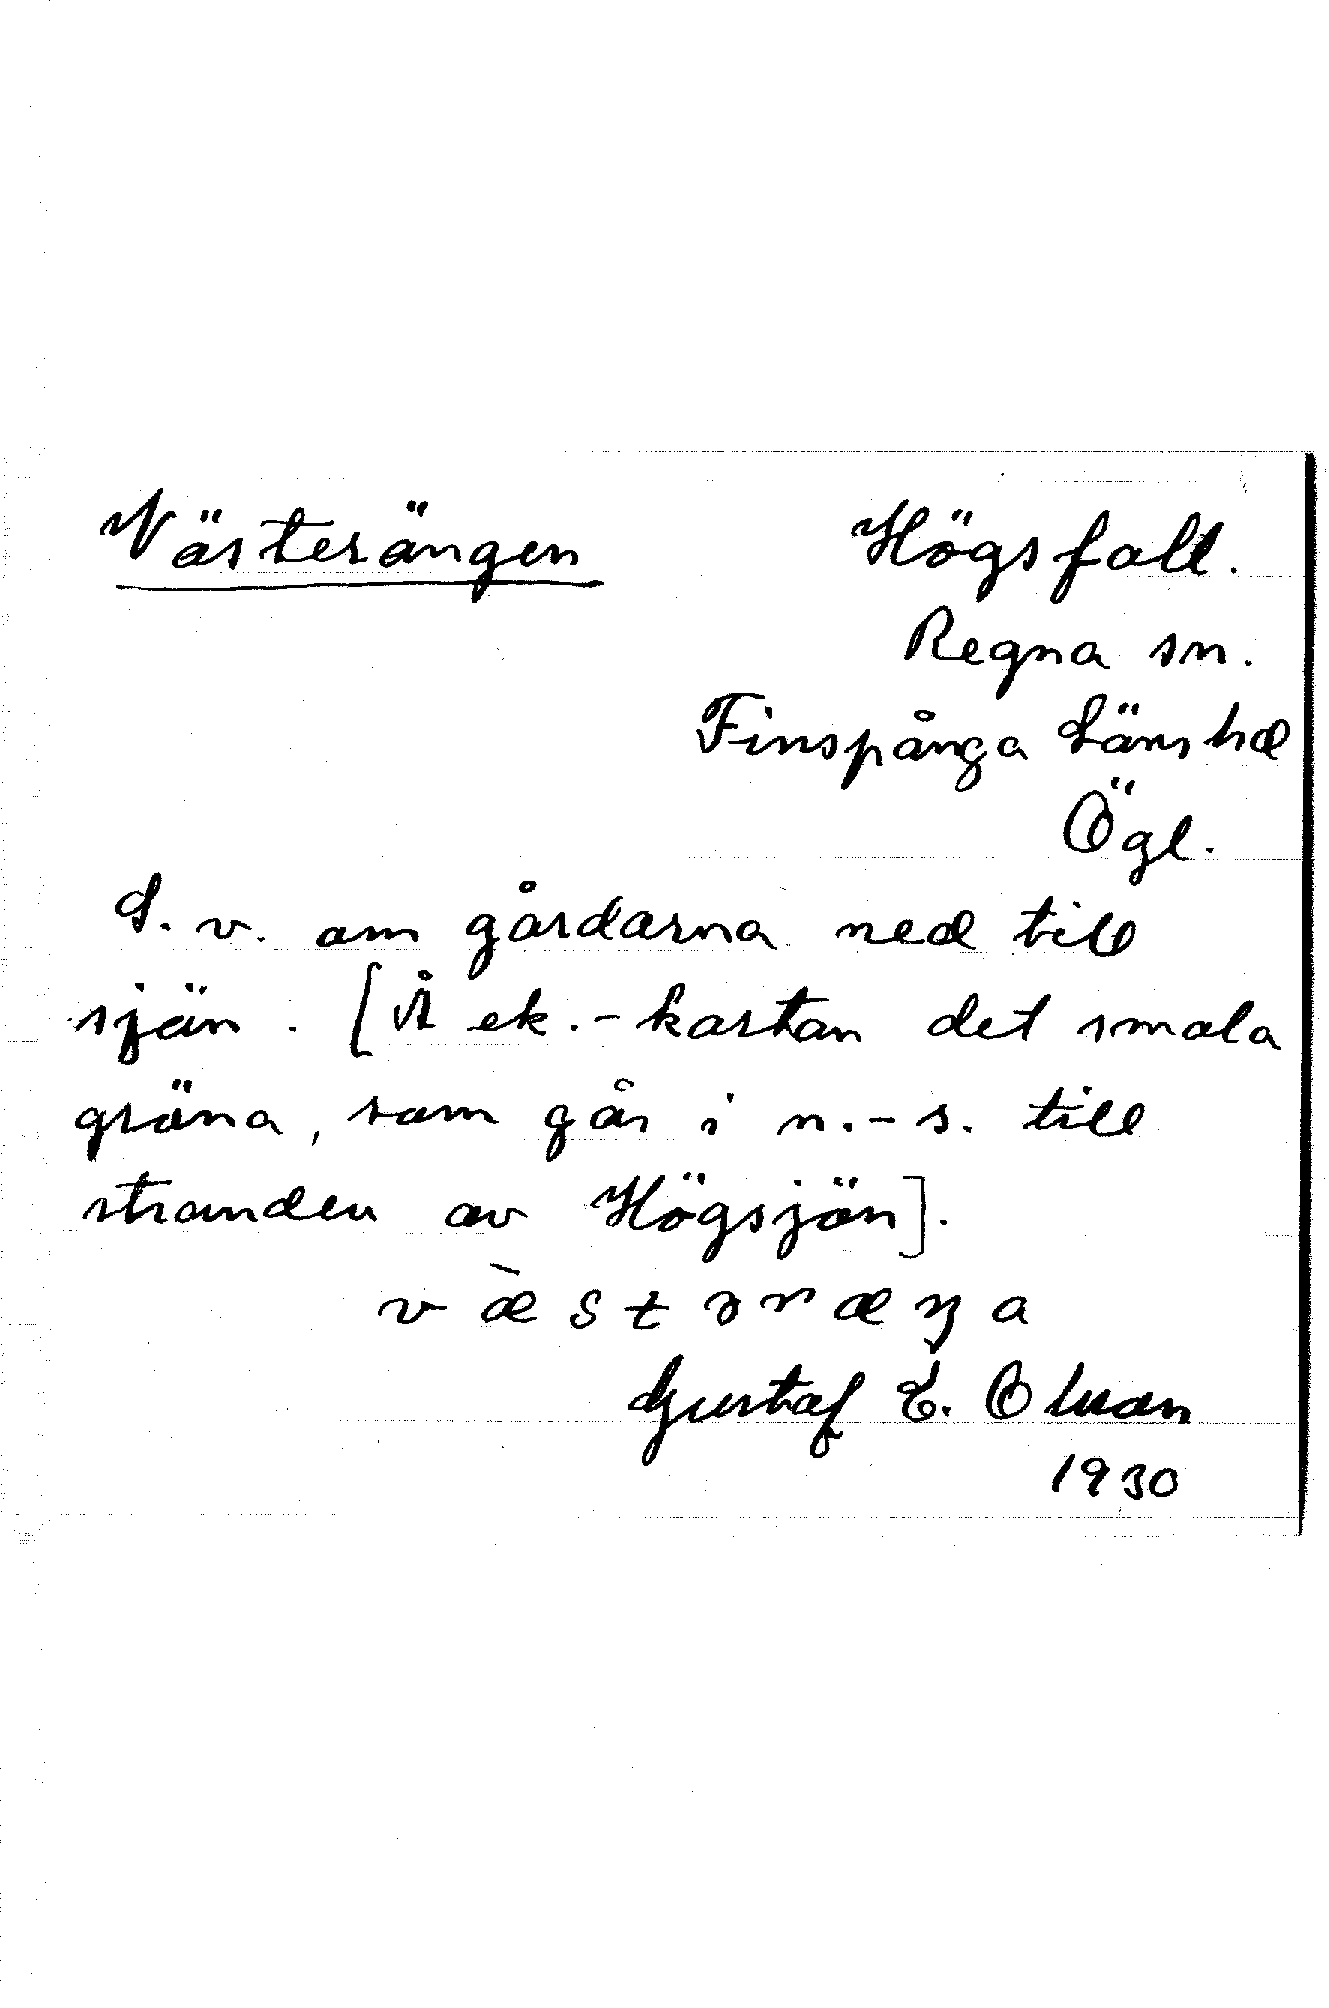 Västerängen
Högsfall.
Regna sn.
Finspånga Läns hd
Ögl.
S. v. om gårdarna ned till
sjön. [Å ek.-kartan det smala
gröna, som går i n.-s. till
stranden av Högsjön].
væ̀stəræŋa
Gustaf E. Olsson
1930